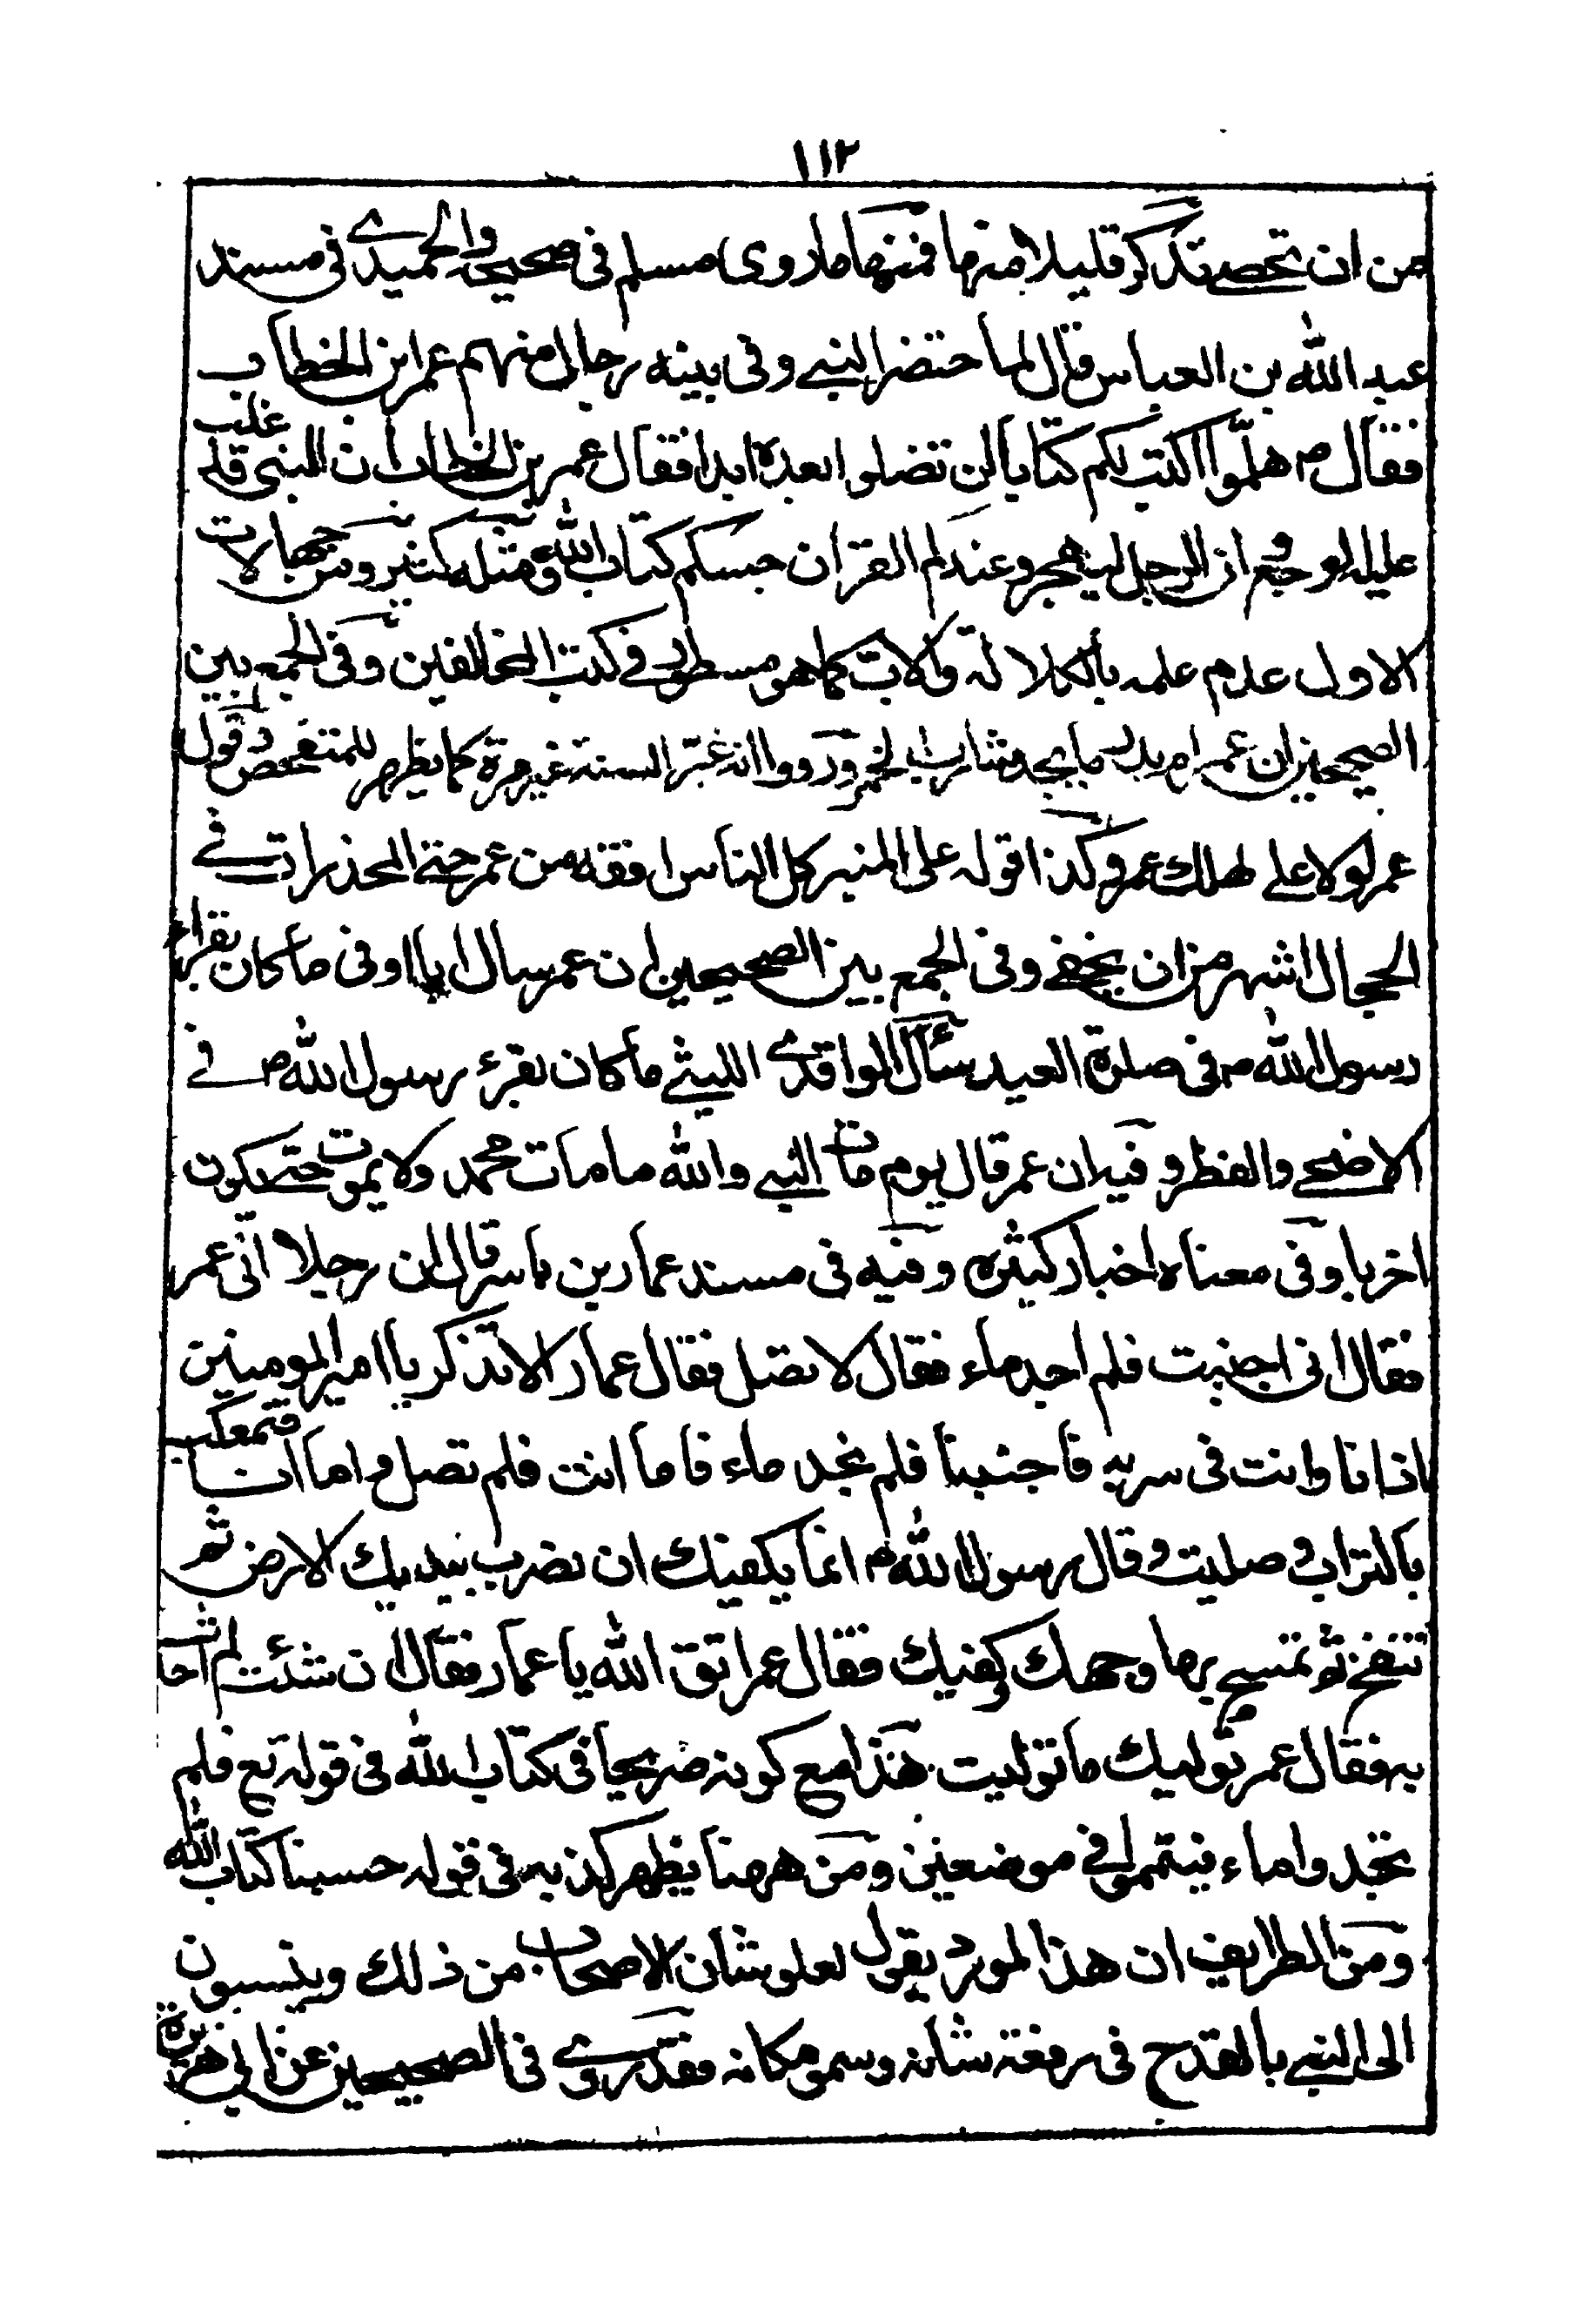 ١١٢
من ان تحصى نذكر قليلا منها فمنها ما روى مسلم فى صحيحه والحميدي فى مسند
عبد الله بن العباس قال لما احتضر النبي وفى بيته رجال منهم عمر ابن الخطاب
فقال م هلموا اكتب لكم كتابا لن تضلوا بعده ابدا فقال عمر بن الخطاب ان النبى قد غلب
عليه الوجع وان الرجل ليهجر وعندكم القران حسبكم كتاب الله ومثله كثير ومن جهالات
الاول عدم علمه بالكلالة والاب كما هو مسطور في كتب المخالفين وفى الجمع بين
الصحيحين ان عمر لم يدر ما يحد شارب الخمر ورووا انه غير السنة غير مرة كما يظهر للمتفحص وقول
عمر لولا علي لهلك عمر وكذا قوله على المنبر كل الناس افقه من عمر حتى المخدرات في
الحجال اشهر من ان يخفى وفى الجمع بين الصحيحين ان عمر سال ابا اوفى ما كان يقرا
رسول الله م فى صلوة العيد سأل الواقدي الليثي ما كان يقرء رسول الله م في
الاضحى والفطر وفيه ان عمر قال يوم مات النبي والله ما مات محمد ولا يموت حتى يكون
اخرنا وفى معناه اخبار كثيره وفيه فى مسند عمار بن ياسر قال ان رجلا اتى عمر
فقال انى اجنبت فلم اجد ماء فقال لا تصل فقال عمار الا تذكر يا امير المومنين
اذ انا وانت فى سريه فاجنبنا فلم نجد ماء فاما انت فلم تصل واما انا فتمعكت
بالتراب وصليت وقال رسول الله م انما يكفيك ان تضرب بيديك الارض ثم
تنفخ ثم تمسح بهما وجهك وكفيك فقال عمر اتق الله يا عمار فقال ان شئت لم احدث
به فقال عمر نوليك ما توليت هذا مع كونه صريحا فى كتاب الله فى قوله تع فلم
تجدوا ماء فتيمموا في موضعين ومن ههنا يظهر كذبه فى قوله حسبنا كتاب الله
ومن الطرايف ان هذا المورد يقول لعلو شان الاصحاب من ذلك وينسبون
الى النبي بالقدح فى رفعة شانه وسمو مكانه فقد روي فى الصحيحين عن ابى هريرة